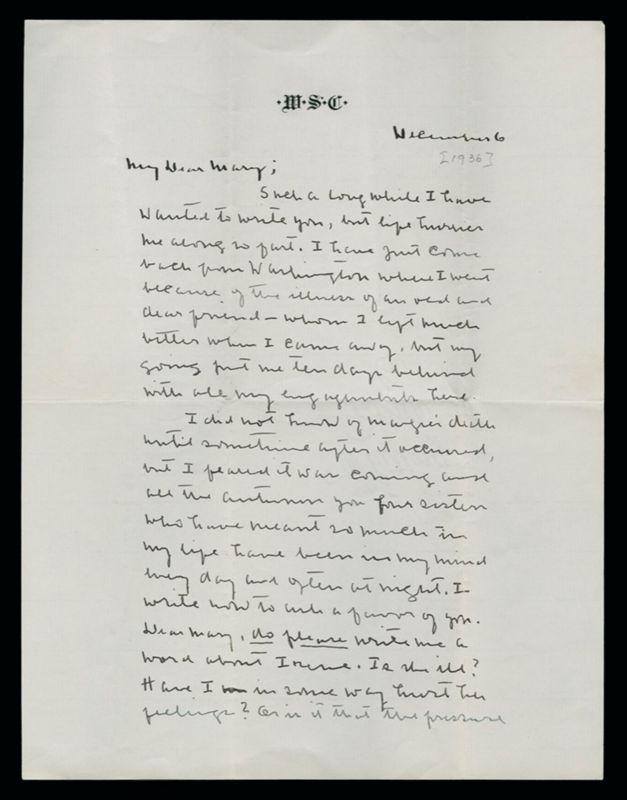 ·W·S·C·
December 6
[1936]
My Dear Mary;
Such a long while I have
wanted to write you, but life hurries
me along so fast. I have just come
back from Washington where I went
because of the illness of an old and
dear friend – whom I left much
better when I came away, but my
going put me ten days behind
with all my engagements here.
I did not know of Margie's death
until sometime after it occurred,
but I feared it was coming and
all the autumn you four sisters
who have meant so much in
my life have been in my mind
every day and often at night. I
write now to ask a favor of you.
Dear Mary, do please write me a
word about Irene. Is she ill?
Have I in some way hurt her
feelings? Or is it that the pressure